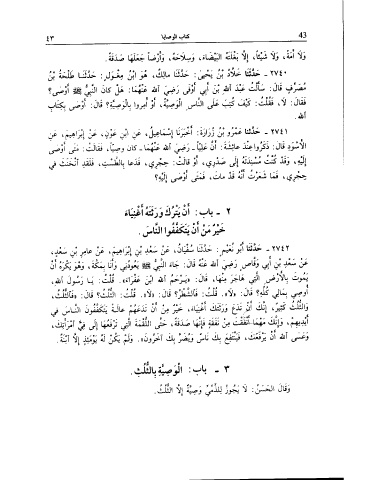 ٤٣ كتاب الوصايا 43
وَلَا أَمَةً، وَلَا شَيْئًا، إِلَّا بَغْلَتَهُ الْبَيْضَاءَ، وَسِلَاحَهُ، وَأَرْضًا جَعَلَهَا صَدَقَةً.
٢٧٤٠ - حَدَّثَنَا خَلَّادُ بْنُ يَحْيَىٰ: حَدَّثَنَا مَالِكٌ، هُوَ ابْنُ مِغْوَلٍ: حَدَّثَنَا طَلْحَةُ بْنُ
مُصَرِّفٍ قَالَ: سَأَلْتُ عَبْدَ اللهِ بْنَ أَبِي أَوْفَىٰ رَضِيَ اللهُ عَنْهُمَا: هَلْ كَانَ النَّبِيُّ ﷺ أَوْصَىٰ؟
فَقَالَ: لَا، فَقُلْتُ: كَيْفَ كُتِبَ عَلَى النَّاسِ الْوَصِيَّةُ، أَوْ أُمِرُوا بِالْوَصِيَّةِ؟ قَالَ: أَوْصَىٰ بِكِتَابِ
اللهِ.
٢٧٤١ - حَدَّثَنَا عَمْرُو بْنُ زُرَارَةَ: أَخْبَرَنَا إِسْمَاعِيلُ، عَنِ ابْنِ عَوْنٍ، عَنْ إِبْرَاهِيمَ، عَنِ
الْأَسْوَدِ قَالَ: ذَكَرُوا عِنْدَ عَائِشَةَ: أَنَّ عَلِيًّا - رَضِيَ اللهُ عَنْهُمَا - كَانَ وَصِيًّا، فَقَالَتْ: مَتَىٰ أَوْصَىٰ
إِلَيْهِ، وَقَدْ كُنْتُ مُسْنِدَتَهُ إِلَىٰ صَدْرِي، أَوْ قَالَتْ: حِجْرِي، فَدَعَا بِالطَّسْتِ، فَلَقَدِ انْخَنَثَ فِي
حِجْرِي، فَمَا شَعَرْتُ أَنَّهُ قَدْ مَاتَ، فَمَتَىٰ أَوْصَىٰ إِلَيْهِ؟
٢ - باب: أَنْ يَتْرُكَ وَرَثَتَهُ أَغْنِيَاءَ
خَيْرٌ مِنْ أَنْ يَتَكَفَّفُوا النَّاسَ.
٢٧٤٢ - حَدَّثَنَا أَبُو نُعَيْمٍ: حَدَّثَنَا سُفْيَانُ، عَنْ سَعْدِ بْنِ إِبْرَاهِيمَ، عَنْ عَامِرِ بْنِ سَعْدٍ،
عَنْ سَعْدِ بْنِ أَبِي وَقَّاصٍ رَضِيَ اللهُ عَنْهُ قَالَ: جَاءَ النَّبِيُّ ﷺ يَعُودُنِي وَأَنَا بِمَكَّةَ، وَهُوَ يَكْرَهُ أَنْ
يَمُوتَ بِالْأَرْضِ الَّتِي هَاجَرَ مِنْهَا، قَالَ: «يَرْحَمُ اللهُ ابْنَ عَفْرَاءَ». قُلْتُ: يَا رَسُولَ اللهِ،
أُوصِي بِمَالِي كُلِّهِ؟ قَالَ: «لَا». قُلْتُ: فَالشَّطْرُ؟ قَالَ: «لَا». قُلْتُ: الثُّلُثُ؟ قَالَ: «فَالثُّلُثُ،
وَالثُّلُثُ كَثِيرٌ، إِنَّكَ أَنْ تَدَعَ وَرَثَتَكَ أَغْنِيَاءَ، خَيْرٌ مِنْ أَنْ تَدَعَهُمْ عَالَةً يَتَكَفَّفُونَ النَّاسَ فِي
أَيْدِيهِمْ، وَإِنَّكَ مَهْمَا أَنْفَقْتَ مِنْ نَفَقَةٍ فَإِنَّهَا صَدَقَةٌ، حَتَّى اللُّقْمَةُ الَّتِي تَرْفَعُهَا إِلَىٰ فِي امْرَأَتِكَ،
وَعَسَى اللهُ أَنْ يَرْفَعَكَ، فَيَنْتَفِعَ بِكَ نَاسٌ وَيُضَرَّ بِكَ آخَرُونَ». وَلَمْ يَكُنْ لَهُ يَوْمَئِذٍ إِلَّا ابْنَةٌ.
٣ - باب: الْوَصِيَّةِ بِالثُّلُثِ.
وَقَالَ الْحَسَنُ: لَا يَجُوزُ لِلذِّمِّيِّ وَصِيَّةٌ إِلَّا الثُّلُثَ.